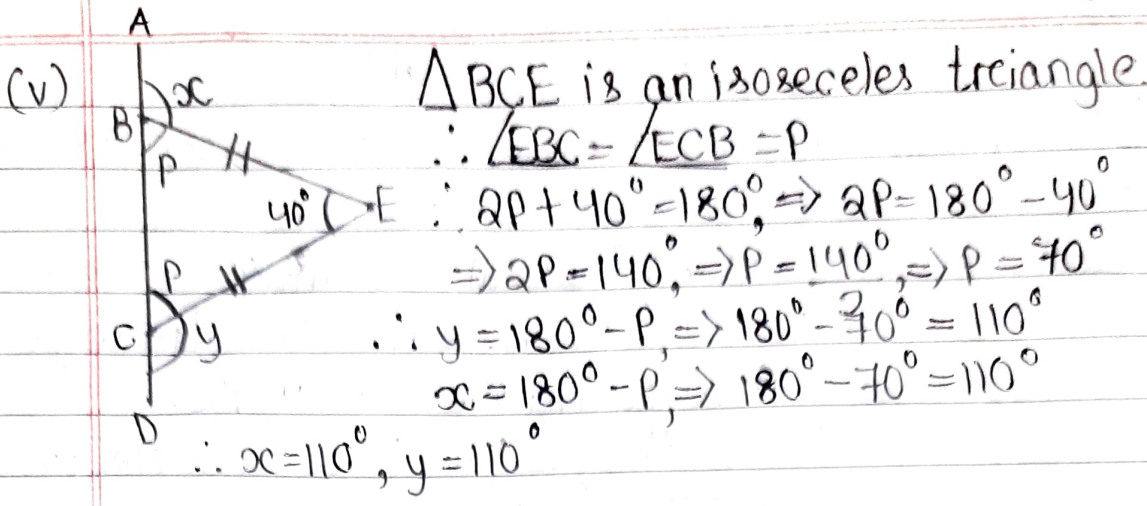 A
(v) x △BCE is an isoseceles treiangle
B ∴ ∠EBC = ∠ECB = P
P
40° E ∴ 2P + 40° = 180°, ⇒ 2P = 180° - 40°
P ⇒ 2P = 140°, ⇒ P = 140°/2, ⇒ P = 70°
C y ∴ y = 180° - P, ⇒ 180° - 70° = 110°
x = 180° - P, ⇒ 180° - 70° = 110°
D
∴ x = 110°, y = 110°